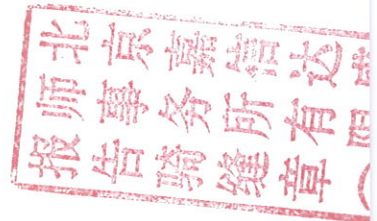 北京嘉信达
师事务所有
报告骑缝章